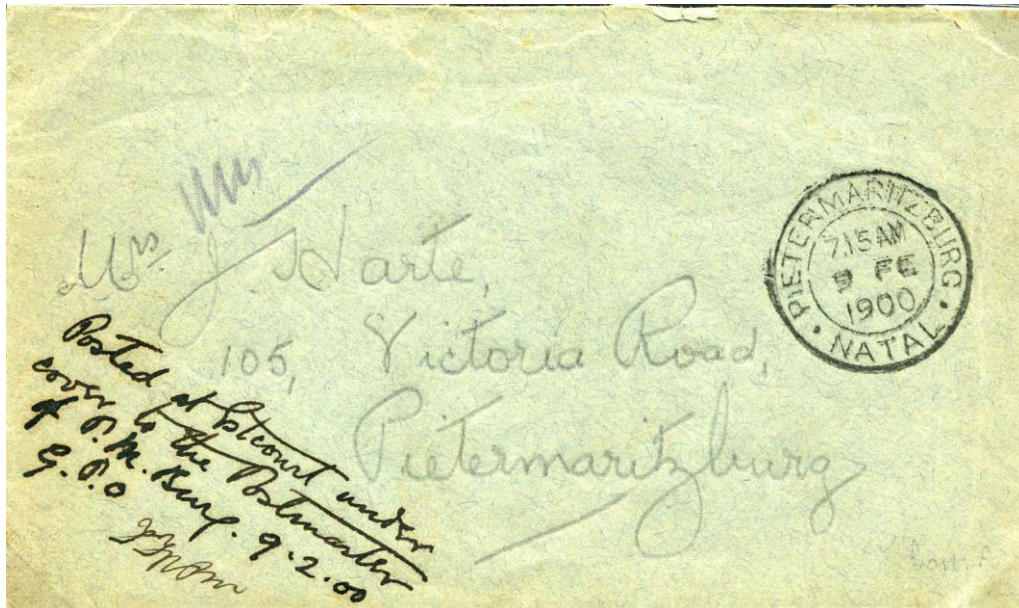 Mrs J Harte,
105, Victoria Road,
Pietermaritzburg
PIETERMARITZBURG
7.15 AM
9 FE
1900
NATAL
Posted at Estcourt under
cover to the Postmaster
of P.M.Burg. 9.2.00
G.P.O